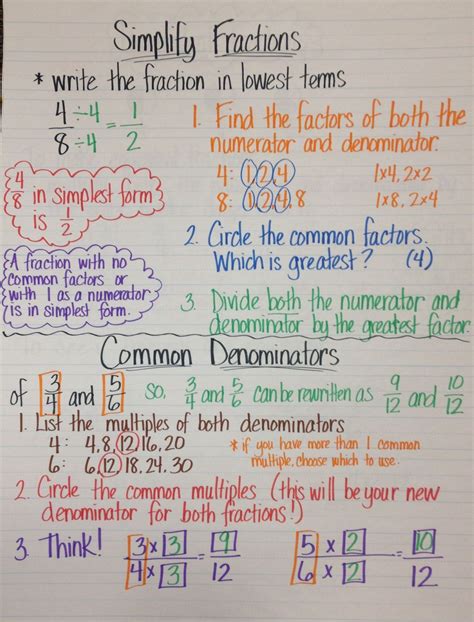 Simplify Fractions
* write the fraction in lowest terms
4 ÷4 = 1
8 ÷4 2
1. Find the factors of both the
numerator and denominator.
4: 1 2 4 1x4, 2x2
8: 1, 2, 4, 8 1x8, 2x4
4/8 in simplest form
is 1/2
2. Circle the common factors.
Which is greatest? (4)
A fraction with no
common factors or
with 1 as a numerator
is in simplest form.
3. Divide both the numerator and
denominator by the greatest factor.
Common Denominators
of 3/4 and 5/6 so, 3/4 and 5/6 can be rewritten as 9/12 and 10/12
1. List the multiples of both denominators
4: 4, 8, 12, 16, 20
6: 6, 12, 18, 24, 30
* if you have more than 1 common
multiple, choose which to use.
2. Circle the common multiples (this will be your new
denominator for both fractions!)
3. Think! 3 x 3 = 9 5 x 2 = 10
4 x 3 12 6 x 2 12